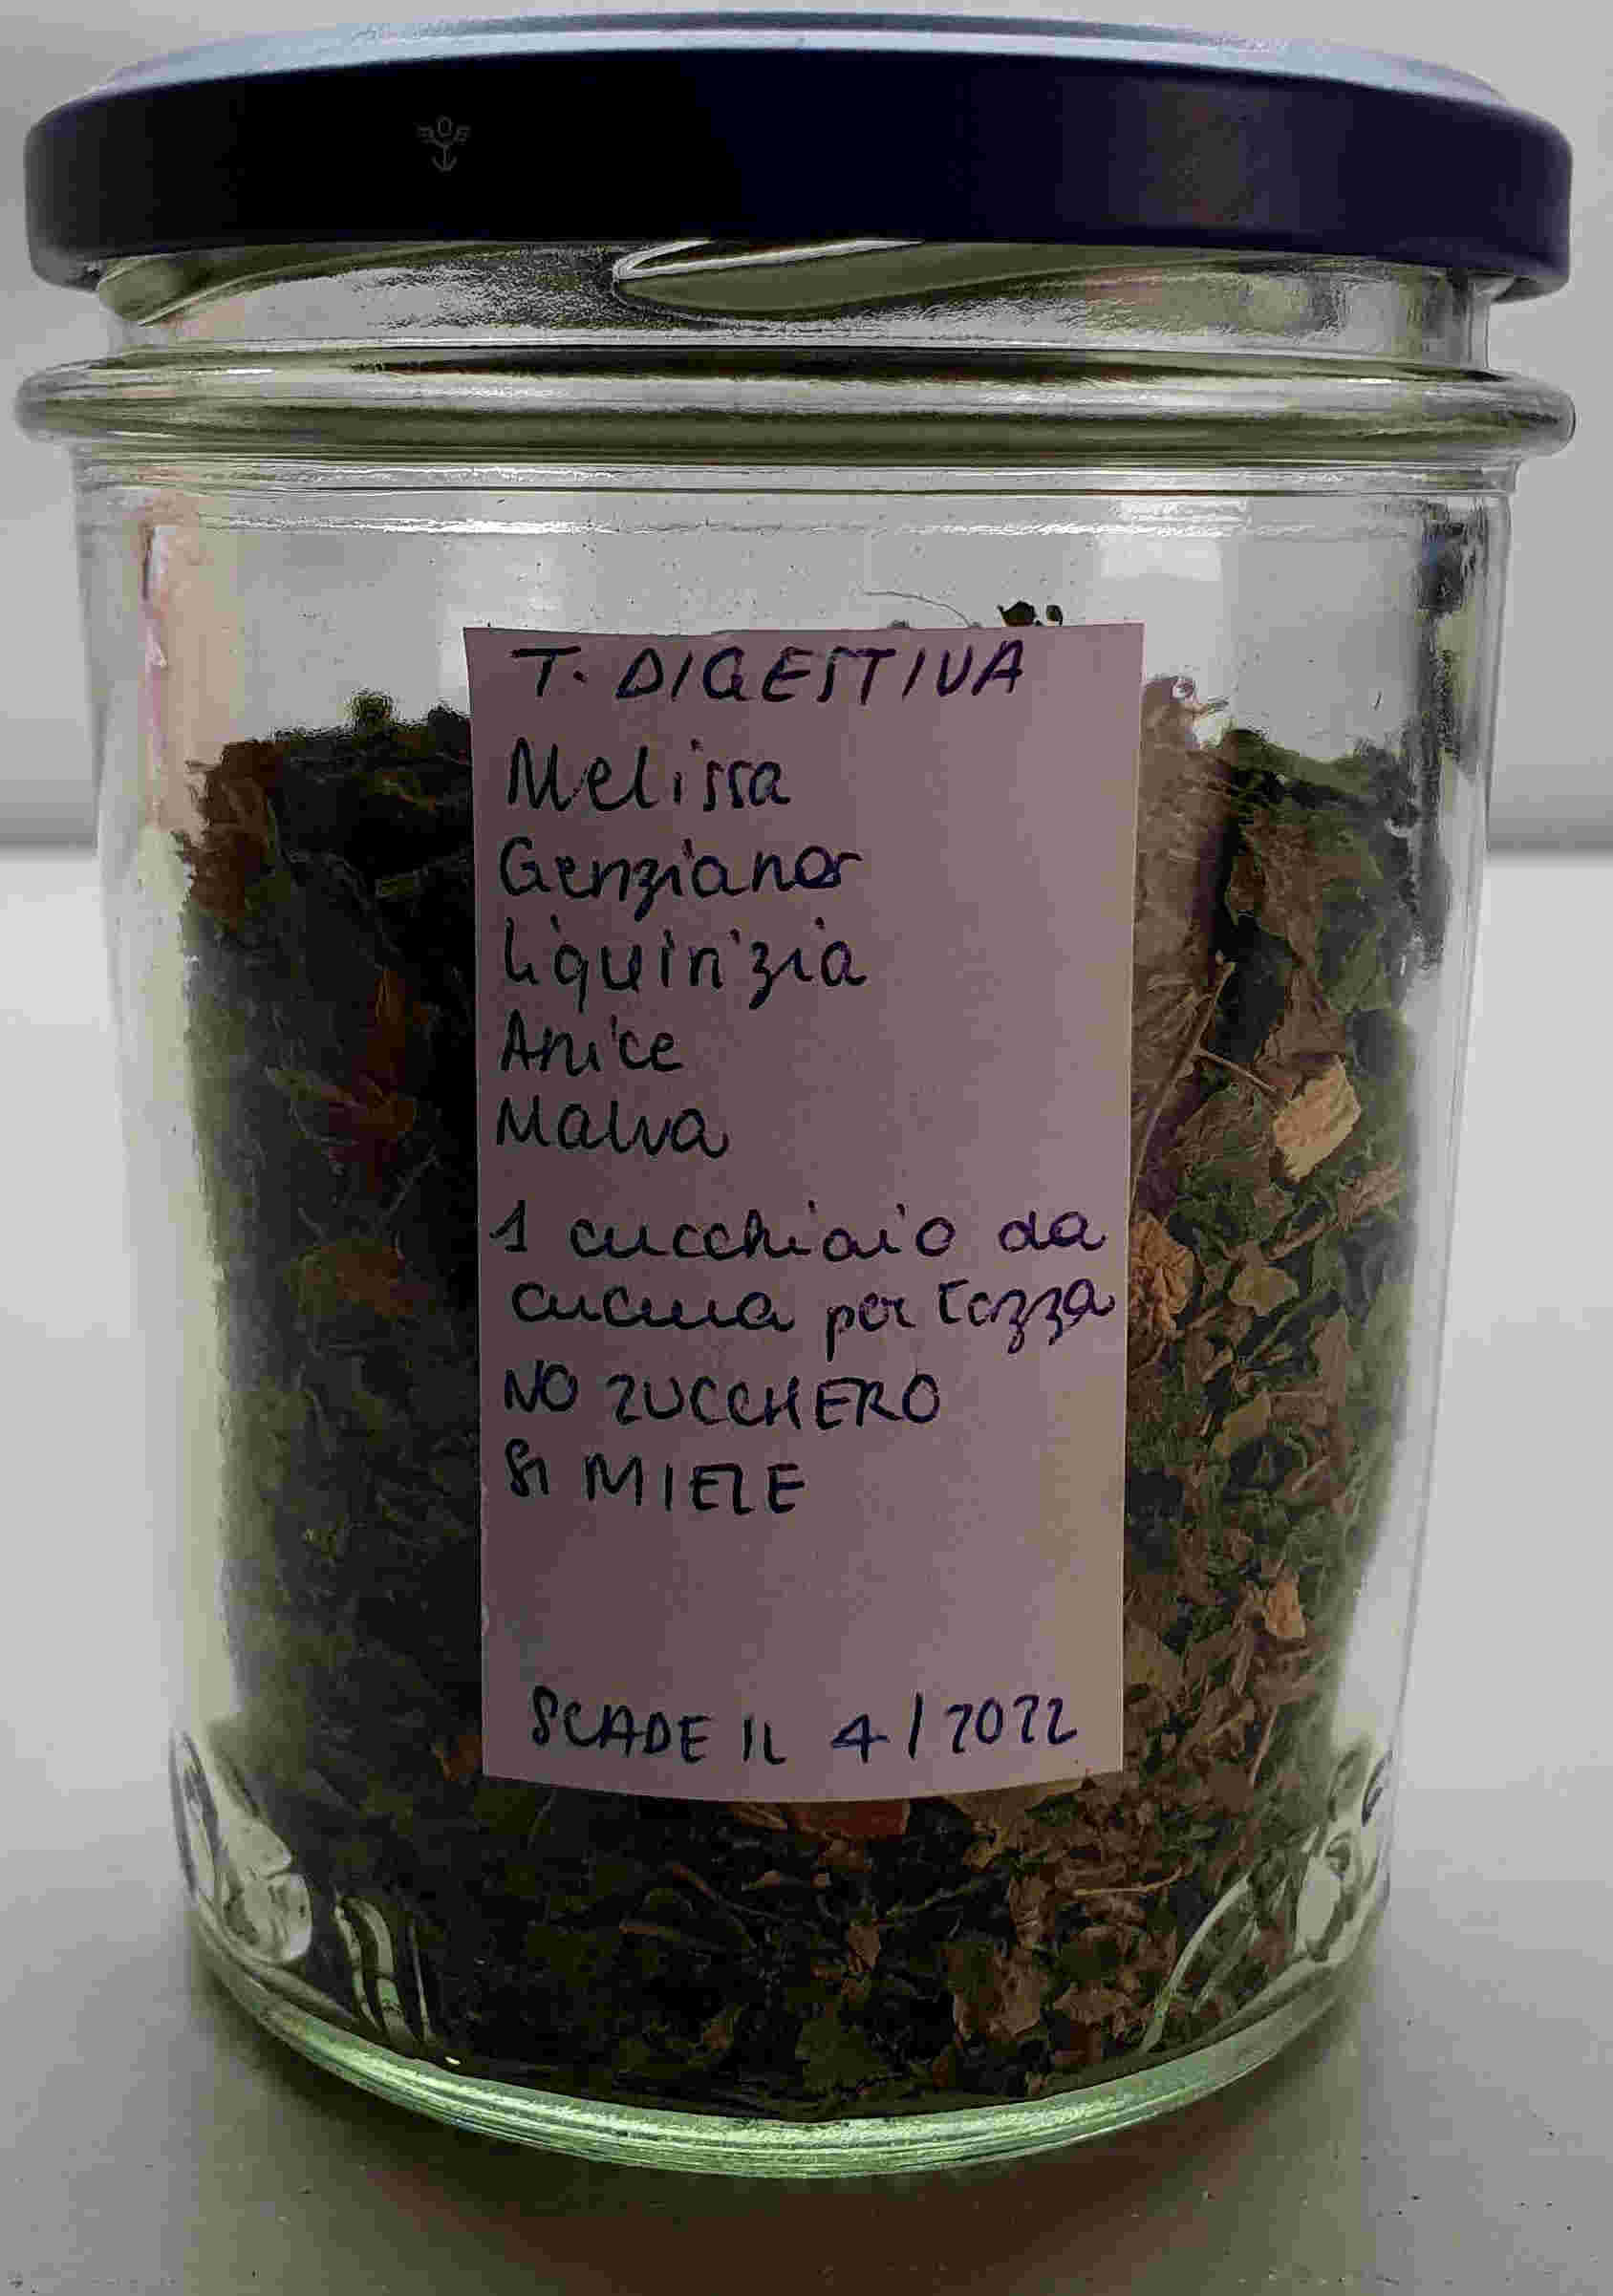 T. DIGESTIVA
Melissa
Genziana
Liquirizia
Anice
Malva
1 cucchiaio da
cucina per tazza
NO ZUCCHERO
SI MIELE
SCADE IL 4/2022